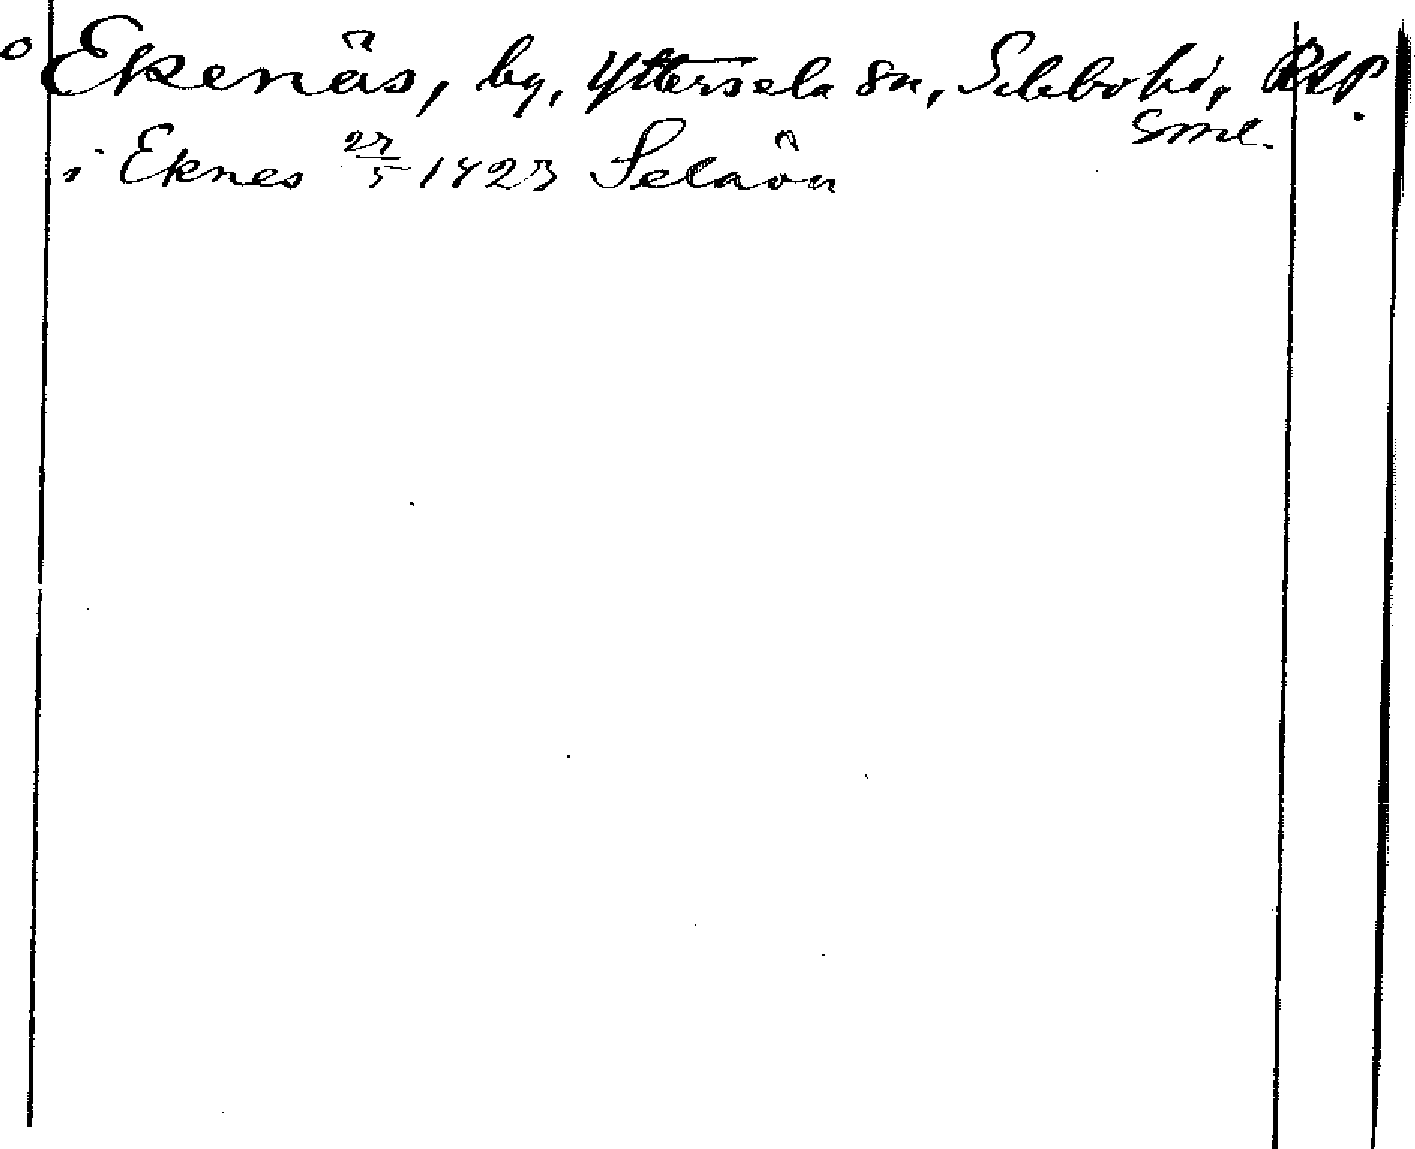 ° Ekenäs, by, Yttersela sn, Selebo hd, RAP.
Sml.
i Eknes 27/5 1423 Selaön